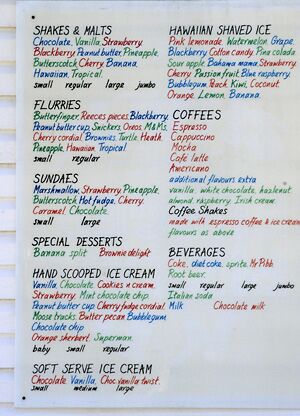 SHAKES & MALTS
Chocolate, Vanilla, Strawberry,
Blackberry, Peanut butter, Pineapple,
Butterscotch, Cherry, Banana,
Hawaiian, Tropical.
small regular large jumbo
FLURRIES
Butterfinger, Reeces pieces, Blackberry,
Peanut butter cup, Snickers, Oreos, M&Ms,
Cherry cordial, Brownies, Turtle, Heath,
Pineapple, Hawaiian, Tropical
small regular
SUNDAES
Marshmallow, Strawberry, Pineapple,
Butterscotch, Hot fudge, Cherry,
Caramel, Chocolate.
small large
SPECIAL DESSERTS
Banana split Brownie delight
HAND SCOOPED ICE CREAM
Vanilla, Chocolate, Cookies n cream,
Strawberry, Mint chocolate chip,
Peanut butter cup, Cherry fudge cordial,
Moose tracks, Butter pecan, Bubblegum,
Chocolate chip
Orange sherbert, Superman.
baby small regular
SOFT SERVE ICE CREAM
Chocolate, Vanilla, Choc.vanilla twist.
small medium large
HAWAIIAN SHAVED ICE
Pink lemonade, Watermelon, Grape,
Blackberry, Cotton candy, Pina colada
Sour apple, Bahama mama, Strawberry,
Cherry, Passion fruit, Blue raspberry,
Bubblegum, Peach, Kiwi, Coconut,
Orange, Lemon, Banana.
COFFEES
Espresso
Cappuccino
Mocha
Cafe latte
Americano
additional flavours extra
vanilla, white chocolate, hazlenut
almond, raspberry, Irish cream.
Coffee Shakes
made with espresso coffee & ice cream
flavours as above
BEVERAGES
Coke, diet coke, sprite, Mr Pibb,
Root beer.
small regular large jumbo
Italian soda
Milk Chocolate milk